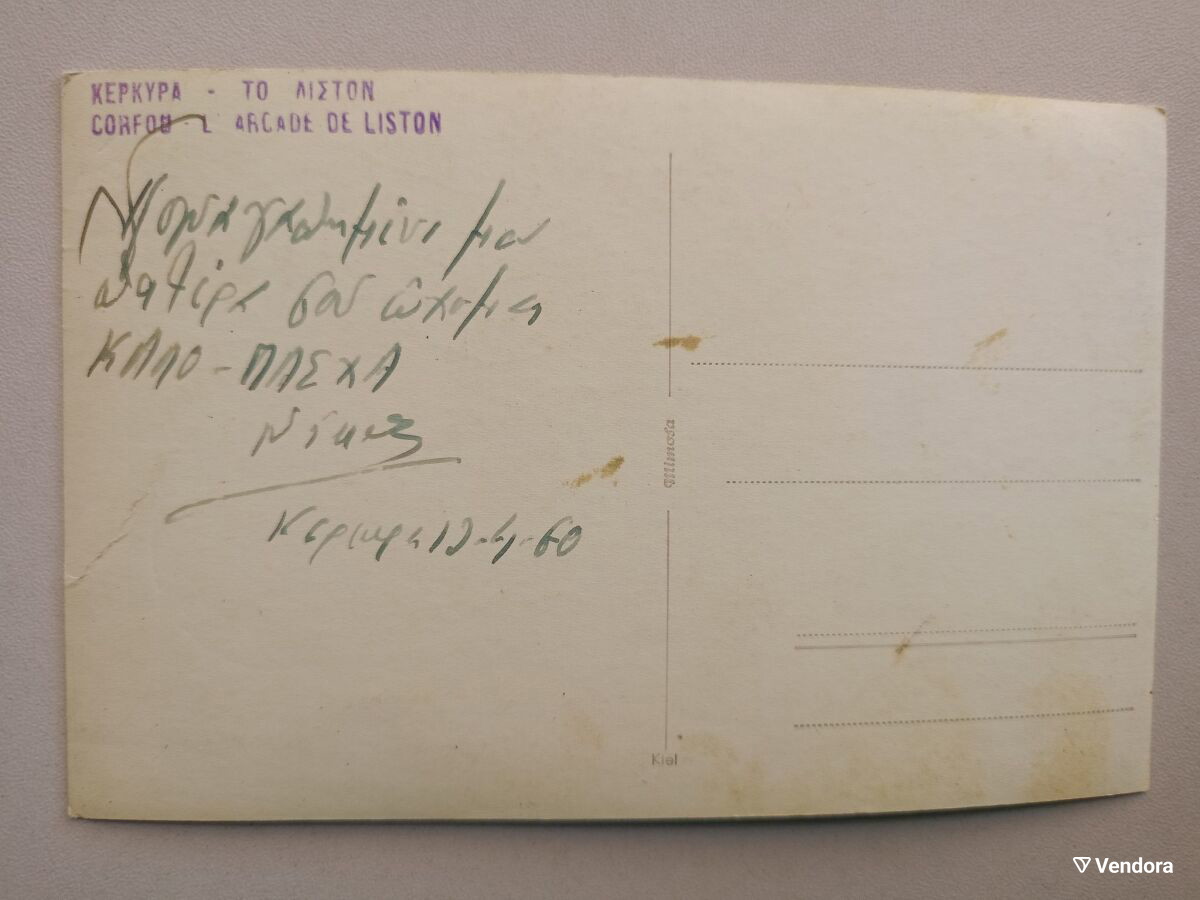 ΚΕΡΚΥΡΑ - ΤΟ ΛΙΣΤΟΝ
CORFOU - L ARCADE DE LISTON
μου
πατέρα σου εύχομαι
ΚΑΛΟ-ΠΑΣΧΑ
Νίκος
Κερκυρα 12-4-60
Mimosa
Kiel
Vendora